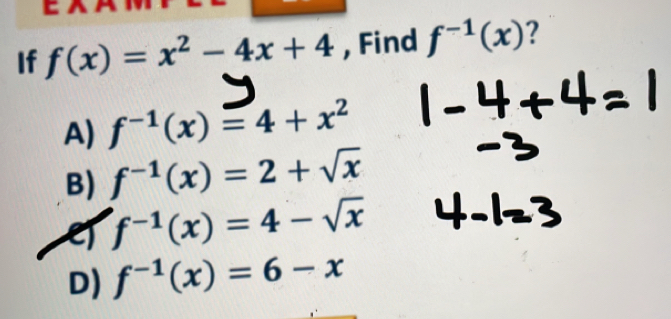 EXAMPLE
If f(x) = x² − 4x + 4 , Find f⁻¹(x)?
y
A) f⁻¹(x) = 4 + x²
1-4+4=1
-3
B) f⁻¹(x) = 2 + √x
C) f⁻¹(x) = 4 − √x
4-1=3
D) f⁻¹(x) = 6 − x